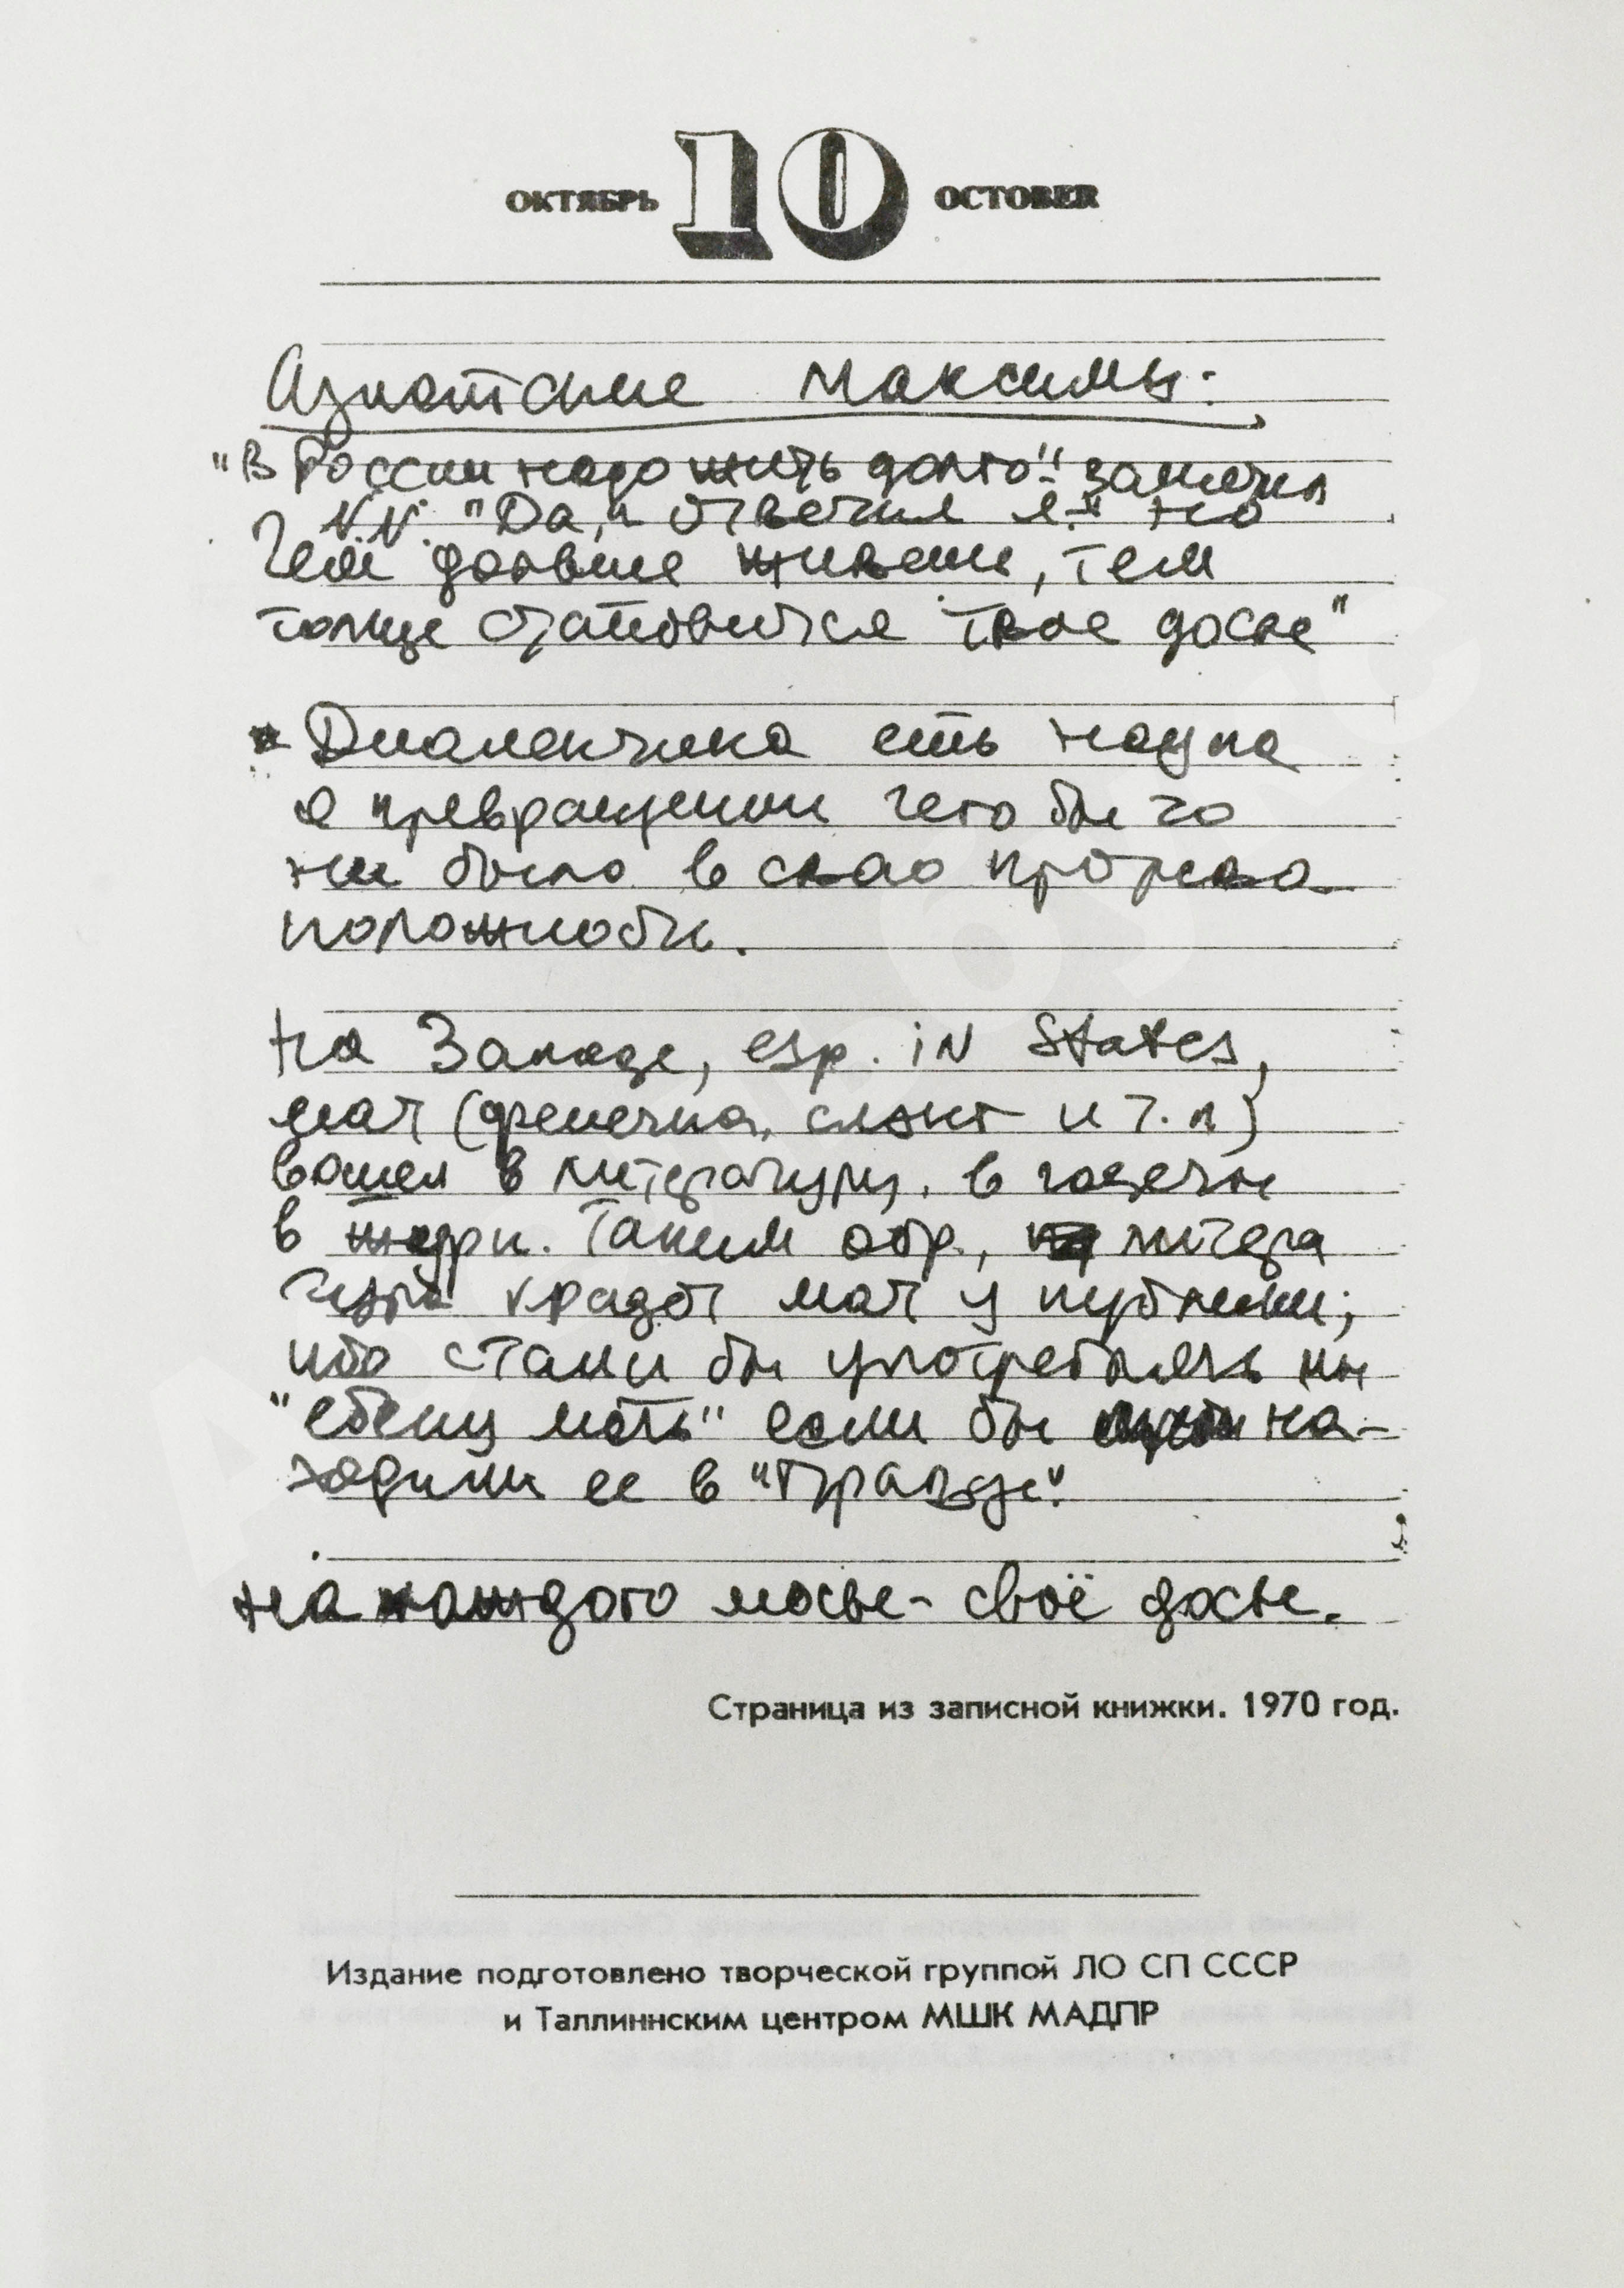 ОКТЯБРЬ 10 OCTOBER
Азиатские максимы:
"В России надо жить долго" заметил
N.N. "Да," ответил я." но
чем дольше живешь, тем
толще становится твое досье"
Диалектика есть наука
о превращении чего бы то
ни было в свою противо
положность.
на Западе, esp. in States,
мат (фенечка, слэнг и т.п)
вошел в литературу, в газеты
в журн. Таким обр., литера
тура крадет мат у публики;
ибо стали бы употреблять мы
"ебену мать" если бы на-
ходили ее в "Правде".
на каждого мосье - своё досье.
Страница из записной книжки. 1970 год.
Издание подготовлено творческой группой ЛО СП СССР
и Таллиннским центром МШК МАДПР